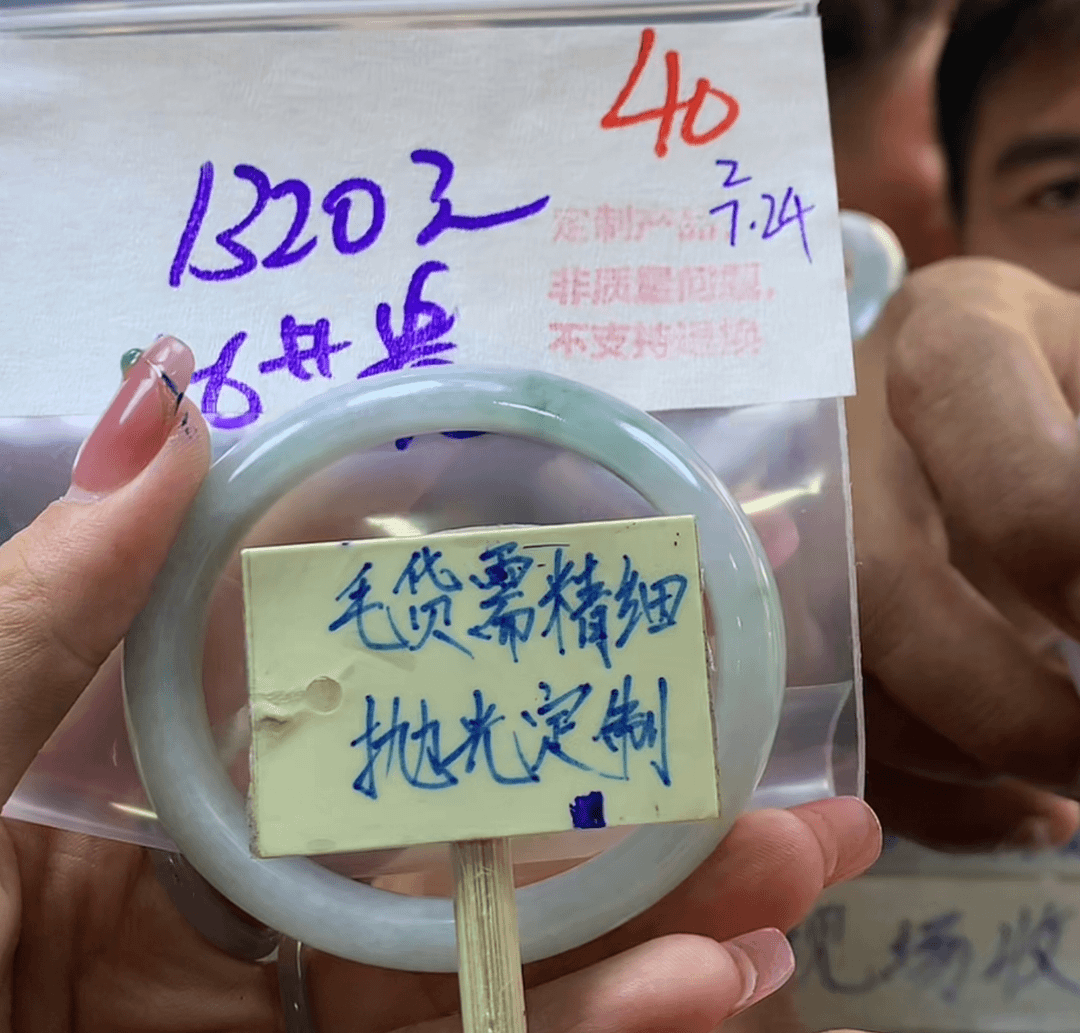 40
1320元
2
7.24
定制产品,
非质量问题,
不支持退换
毛货需精细
抛光定制
现场收